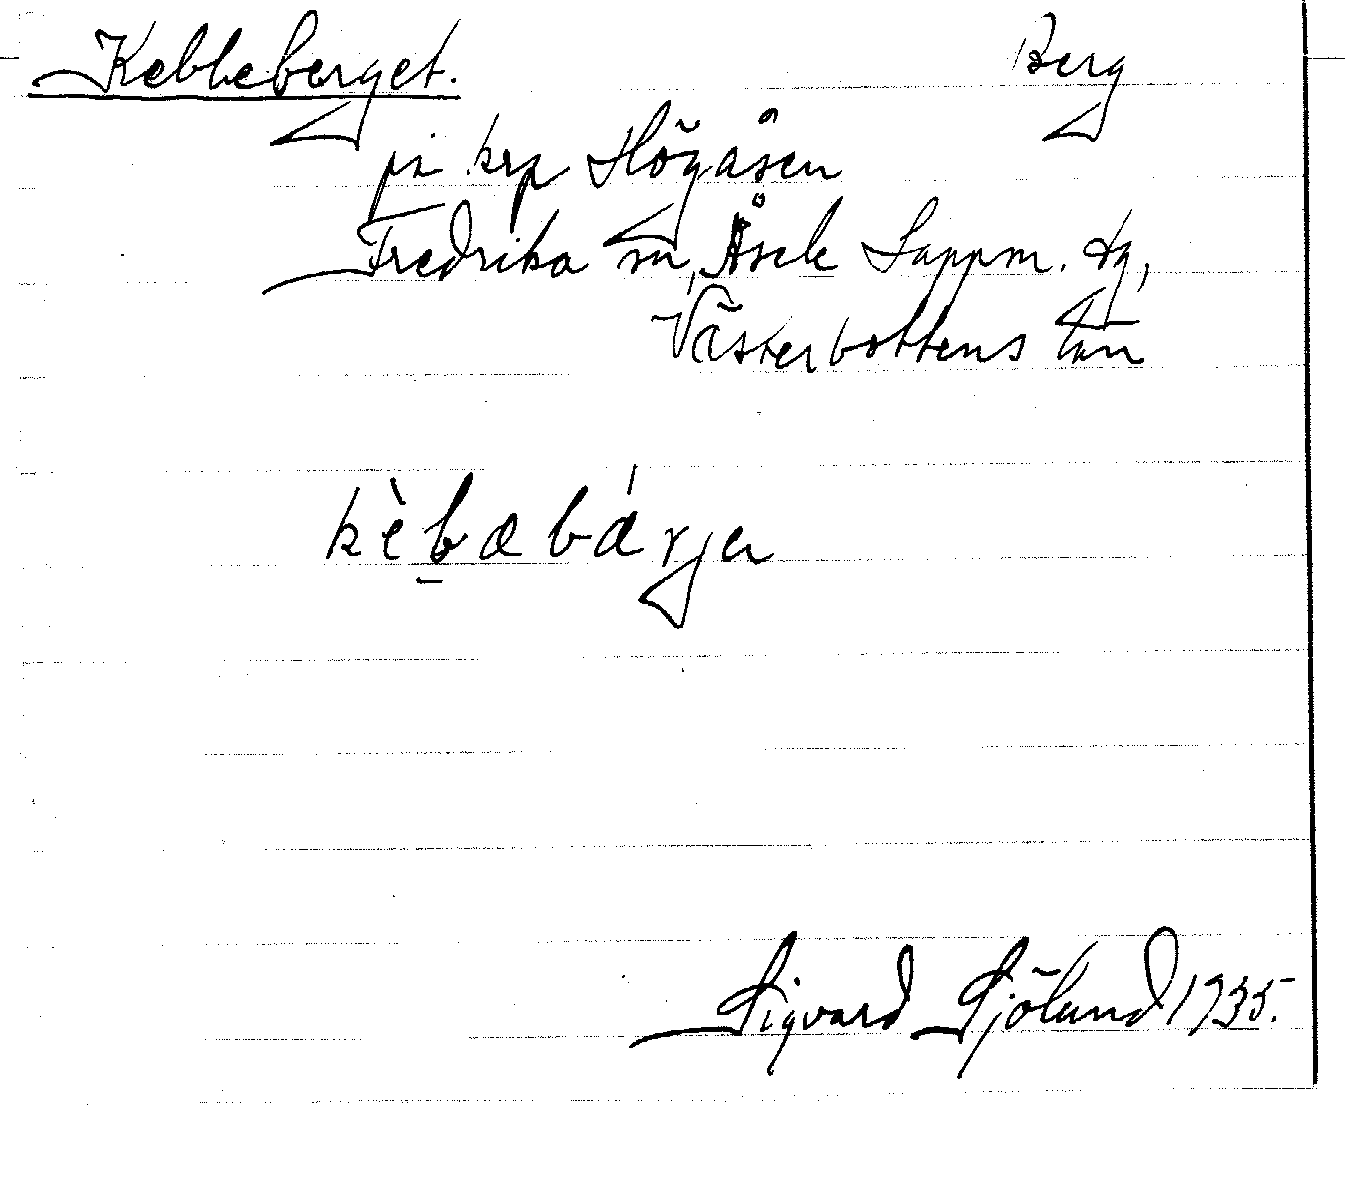 Kebbeberget. Berg
på krp Högåsen
Fredrika sn, Åsele Lappm. tg,
Västerbottens län
kèbabárjen
Sigvard Sjölund 1935.